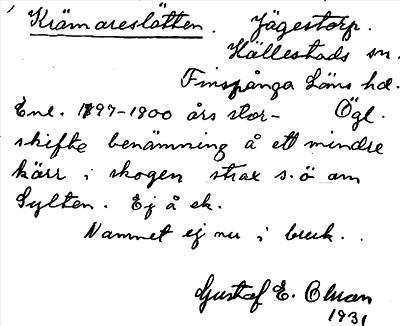 Krämareslätten. Jägestorp.
Hällestads sn.
Finspånga Läns hd.
Enl. 1797-1800 års stor- Ögl.
skifte benämning å ett mindre
kärr i skogen strax s.ö om
Sylten. Ej å ek.
Namnet ej nu i bruk.
Gustaf E. Olman
1931